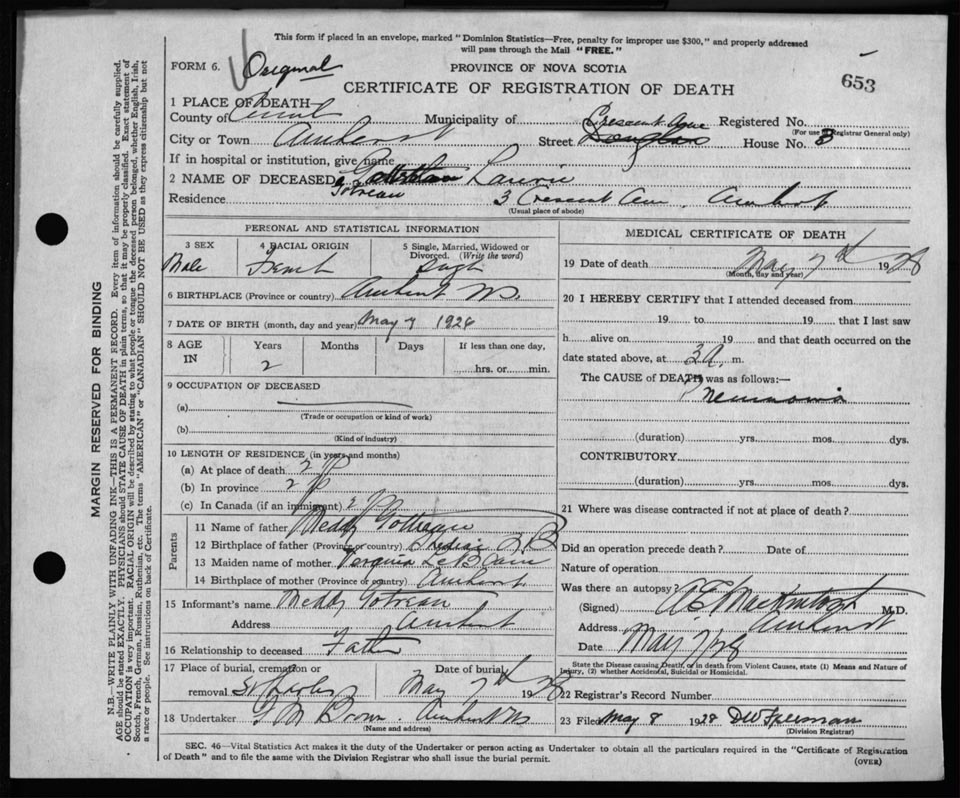 This form if placed in an envelope, marked "Dominion Statistics—Free, penalty for improper use $300," and properly addressed
will pass through the Mail "FREE."
FORM 6. Original
PROVINCE OF NOVA SCOTIA
653
CERTIFICATE OF REGISTRATION OF DEATH
1 PLACE OF DEATH
County of Municipality of Registered No.
(For use Registrar General only)
City or Town Amherst Street Crescent Ave House No. 3
If in hospital or institution, give name
2 NAME OF DECEASED Gotreau
Residence 3 Crescent Ave. Amherst
(Usual place of abode)
PERSONAL AND STATISTICAL INFORMATION
3 SEX 4 RACIAL ORIGIN 5 Single, Married, Widowed or
Divorced. (Write the word)
Male French Single
6 BIRTHPLACE (Province or country) Amherst NS.
7 DATE OF BIRTH (month, day and year) May 7 1926
8 AGE IN Years Months Days If less than one day,
2 hrs. or min.
9 OCCUPATION OF DECEASED
(a)
(Trade or occupation or kind of work)
(b)
(Kind of industry)
10 LENGTH OF RESIDENCE (in years and months)
(a) At place of death 2
(b) In province 2
(c) In Canada (if an immigrant) 2
Parents
11 Name of father Meddy Gotreau
12 Birthplace of father (Province or country) Shediac N B
13 Maiden name of mother LeBlanc
14 Birthplace of mother (Province or country) Amherst
15 Informant's name Meddy Gotreau
Address Amherst
16 Relationship to deceased Father
17 Place of burial, cremation or Date of burial
removal St Charles May 7th 1928
18 Undertaker Brown. Amherst NS
(Name and address)
MEDICAL CERTIFICATE OF DEATH
19 Date of death May 7th 1928
(Month, day and year)
20 I HEREBY CERTIFY that I attended deceased from
19 to 19 that I last saw
h alive on 19 and that death occurred on the
date stated above, at 3 A. m.
The CAUSE of DEATH was as follows:—
Pneumonia
(duration) yrs. mos. dys.
CONTRIBUTORY
(duration) yrs. mos. dys.
21 Where was disease contracted if not at place of death?
Did an operation precede death? Date of
Nature of operation
Was there an autopsy?
(Signed) M.D.
Address Amherst
Date May 7/28
State the Disease causing Death, or in death from Violent Causes, state (1) Means and Nature of
Injury, (2) whether Accidental, Suicidal or Homicidal.
22 Registrar's Record Number
23 Filed May 8 1928
(Division Registrar)
SEC. 46—Vital Statistics Act makes it the duty of the Undertaker or person acting as Undertaker to obtain all the particulars required in the "Certificate of Registration
of Death" and to file the same with the Division Registrar who shall issue the burial permit.
(OVER)
MARGIN RESERVED FOR BINDING
N.B.—WRITE PLAINLY WITH UNFADING INK—THIS IS A PERMANENT RECORD. Every item of information should be carefully supplied.
AGE should be stated EXACTLY. PHYSICIANS should STATE CAUSE OF DEATH in plain terms, so that it may be properly classified. Exact statement of
OCCUPATION is very important. RACIAL ORIGIN will be described by stating to what people or tongue the deceased person belonged, whether English, Irish,
Scotch, French, German, Russian, Ruthenian, etc. The terms "AMERICAN" or "CANADIAN" SHOULD NOT BE USED as they express citizenship but not
a race or people. See instructions on back of Certificate.